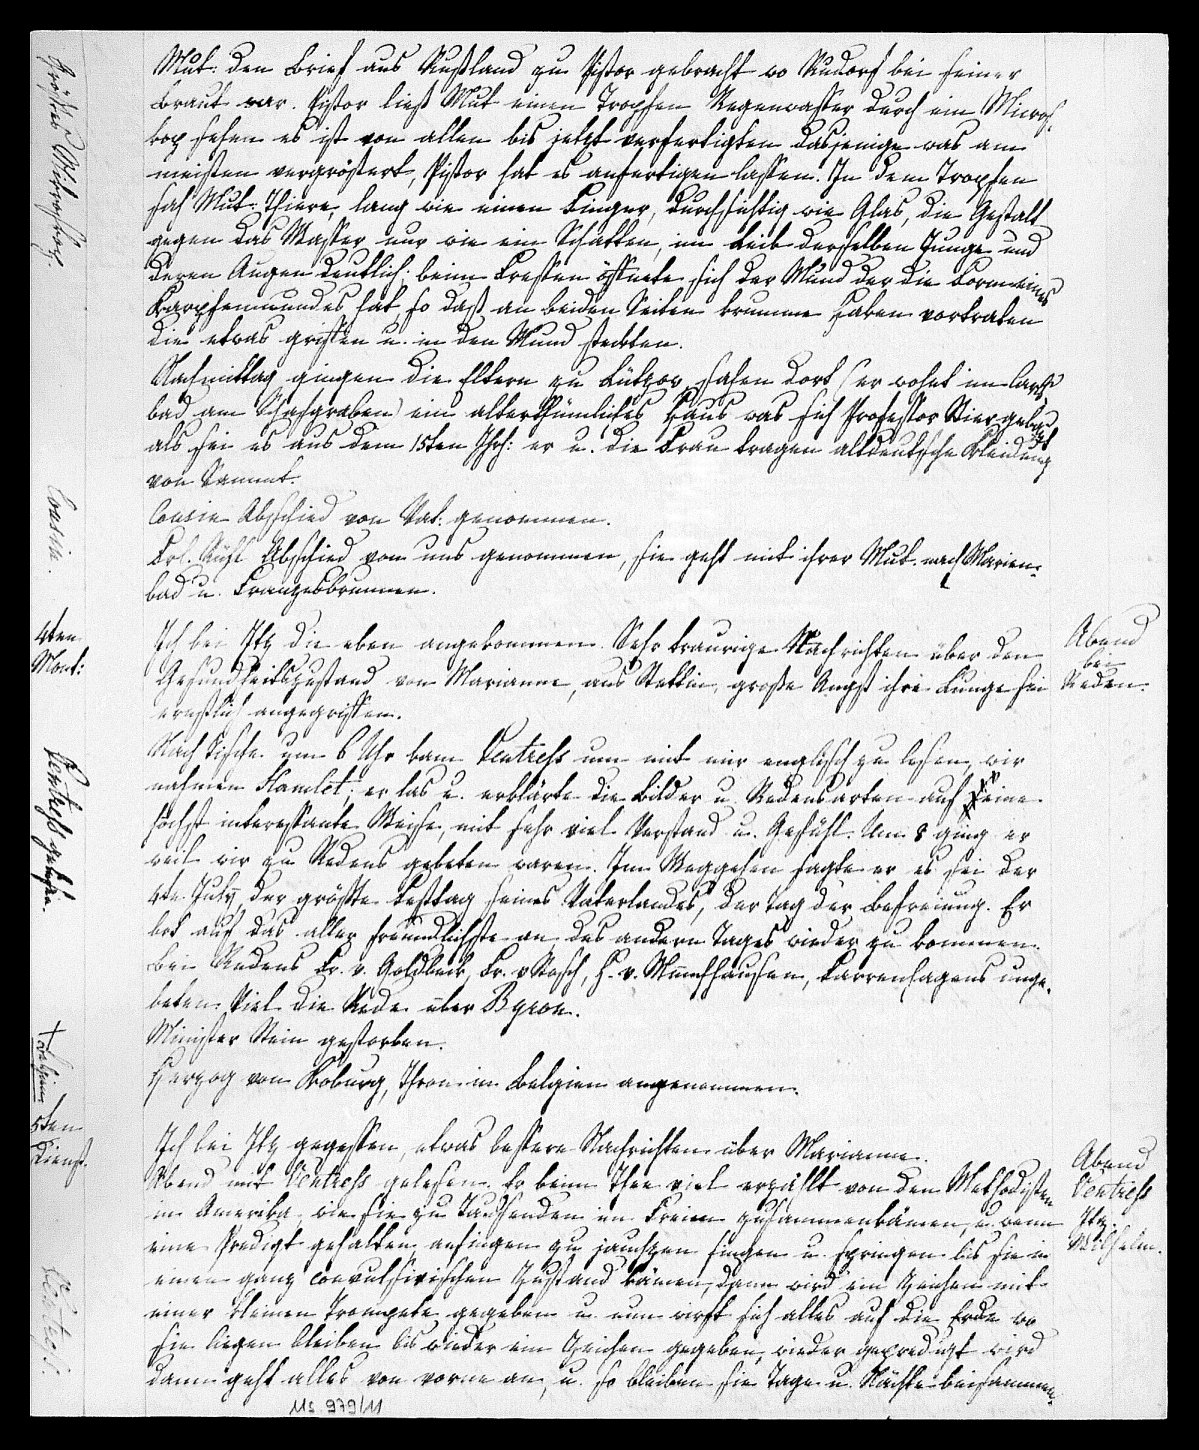 Größtes Mikroskop.
Mut: den Brief aus Rußland zu Pistor gebracht wo Rudorf bei seiner
Braut war. Pistor ließ Mut einen Tropfen Regenwasser durch ein Micros-
kop sehen es ist von allen bis jetzt verfertigten dasjenige was am
meisten vergrößert, Pistor hat es anfertigen lassen. In dem Tropfen
sah Mut: Thiere, lang wie einen Finger, durchsichtig wie Glas, die Gestalt
gegen das Wasser nur wie ein Schatten, im Leib derselben Junge und
deren Augen deutlich; beim Fressen öffnete sich der Mund der die Form eines
Karpfenmundes hat, so daß an beiden Seiten krumme Haken vortraten
die etwas griffen u. in den Mund steckten.
Nachmittag gingen die Eltern zu Lützow, sahen dort (er wohnt im Carls-
bad am Schafgraben) ein alterthümliches Haus was sich Professor Stier gebaut
als sei es aus dem 15ten Jhrh: er u. die Frau tragen altdeutsche Kleidung
von Sammt.
Cousin.
Cousin Abschied von Vat: genommen.
Frl. Rühl Abschied von uns genommen, sie geht mit ihrer Mut. nach Marien-
bad u. Franzesbrunnen.
4ten
Mont:
Ich bei Itz die eben angekommen. Sehr traurige Nachrichten über den
Gesundheitszustand von Marianne, aus Stettin, große Angst ihre Lunge sei
ernstlich angegriffen.
Abend
bei
Reden.
Ventress gelesen.
Nach Tische um 6 Uhr kam Ventress um mit mir englisch zu lesen, wir
nahmen Hamlet; er las u. erklärte die Bilder u. Redensarten auf eine
höchst interessante Weise, mit sehr viel Verstand u. Gefühl. Um 8 ging er
weil wir zu Redens gebeten waren. Im Weggehen sagte er es sei der
4te July, der größte Festtag seines Vaterlandes, der Tag der Befreiung. Er
bot auf das aller freundlichste an des andern Tages wieder zu kommen.
Bei Redens Fr. v. Goldbeck, Fr. v Rosch, H. v. Münchhausen, Farrenhagens unge-
beten. Viel die Rede über Byron.
† v. Stein
Minister Stein gestorben.
Herzog von Koburg, Thron in Belgien angenommen.
5ten
Dienst.
Ich bei Itz gegessen, etwas bessere Nachrichten über Marianne.
Abend mit Ventress gelesen. Er beim Thee viel erzählt von den Methodisten
in Amerika, wie sie zu Tausenden im Freien zusammenkämen, u. wenn
eine Predigt gehalten, anfingen zu jauchzen singen u. springen bis sie in
einen ganz convulsivischen Zustand kämen, dann wird ein Zeichen mit
einer kleinen Trompete gegeben u. nun wirft sich alles auf die Erde wo
sie liegen bleiben bis wieder ein Zeichen gegeben, wieder gepredigt wird
dann geht alles von vorne an, u. so bleiben sie Tage u. Nächte beisammen.
Abend
Ventress
Itz.
Wilhelm.
Ms 979/11